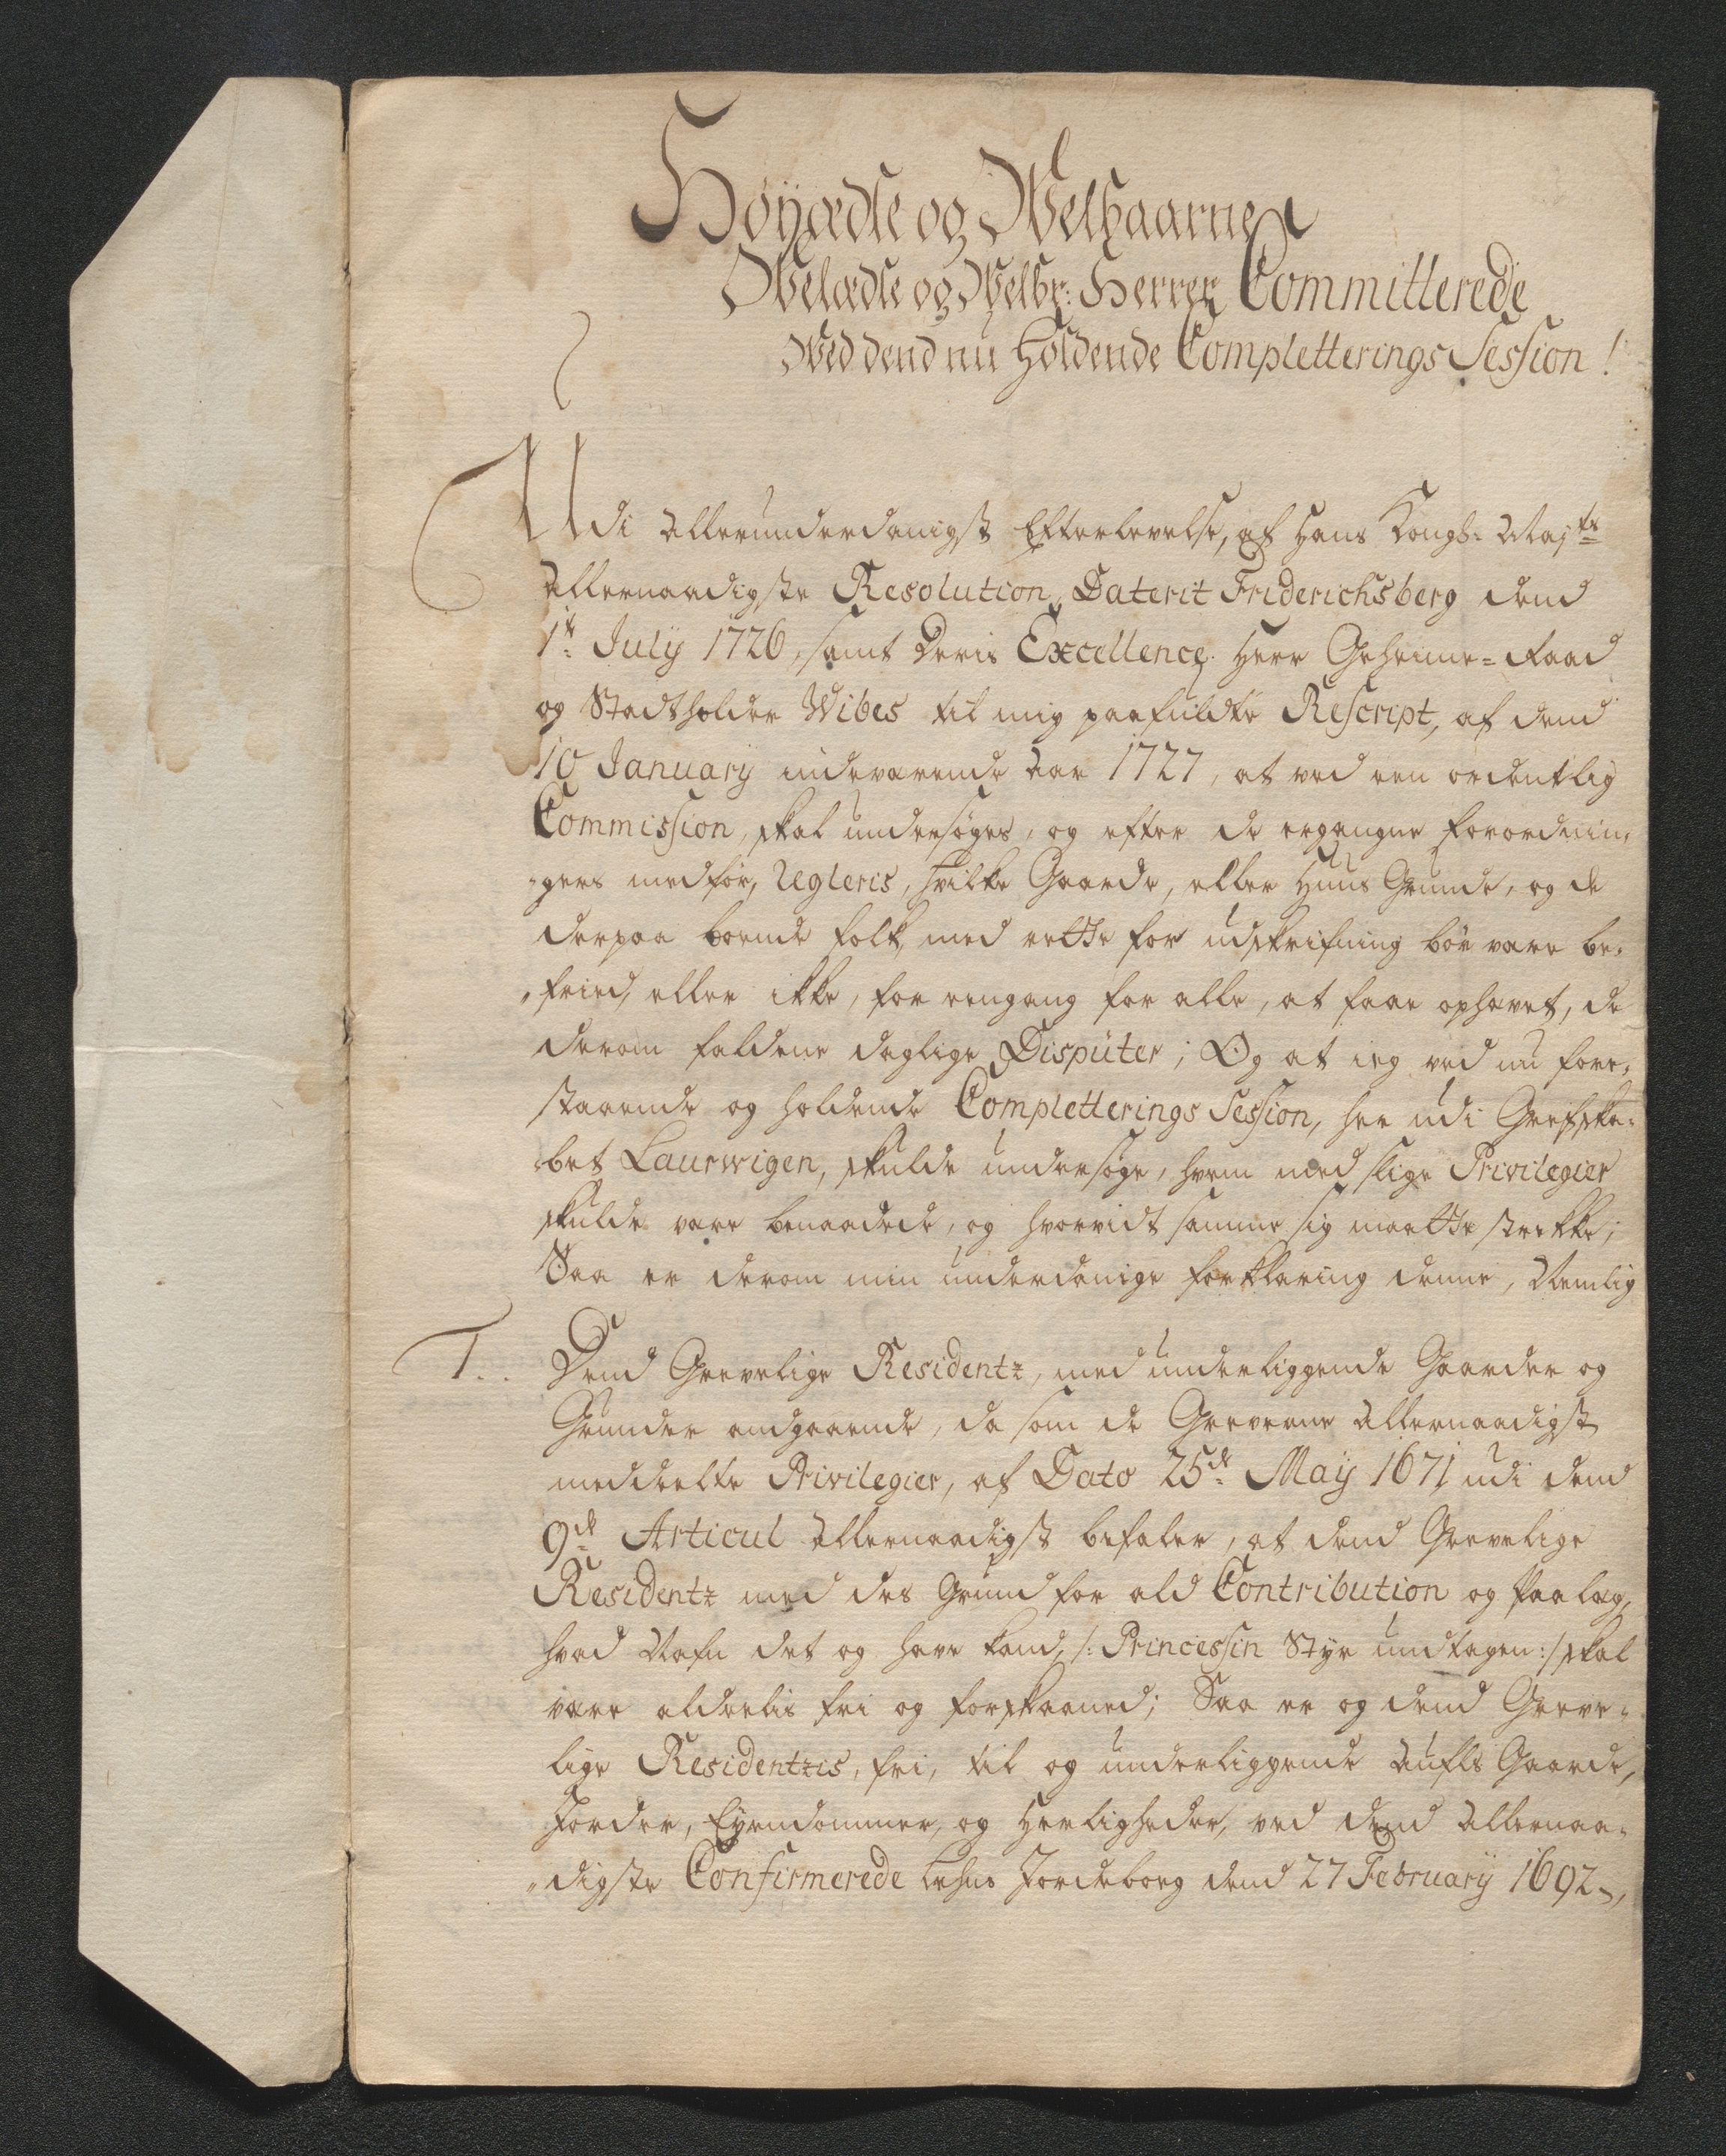 Høÿædle og Welbaarne
Welædle og Welbr: Herrer Committerede
Wed dend nu holdende Completterings Session!
Udi Allerunderdanigst Efterlevelse, af Hans Kongl: Maj:ts
Allernaadigste Resolution, Daterit Friderichsberg dend
1:t Julÿ 1726, samt Deris Excellence Herr Geheime-Raad
og Stadtholder Wibes til mig paafuldte Rescript, af dend
10 Januarÿ indeværende Aar 1727, at ved een ordentlig
Commission, skal undersøges, og efter de ergangne forordnin-
-gers medfør, Regleris, hvilke Gaarde, eller Huus Grunde, og de
derpaa boende folk, med rette for udskrifning bør være be-
-friede, eller ikke, for eengang for alle, at faae ophævet, de
derom faldene daglige Dispüter; Og at ieg ved nu fore-
staaende og holdende Completterings Session, her udi Grefska-
bet Laurwigen, skulde undersøge, hvem med slige Privilegier
skulde være benaadede, og hvorvidt samme sig maatte strekke;
Saa er derom min underdanige forklaring denne, Nemlig
1. Dend Grevelige Residentz, med underliggende Gaarder og
Grunder andgaaende, da som de Greverne Allernaadigst
meddeelte Privilegier, af Dato 25:de Maÿ 1671 udi dend
9:de Articul Allernaadigst befaler, at dend Grevelige
Residentz med des Grund for ald Contribution og Paalæg,
hvad Nafn det og have kand, /: Princessin Styr undtagen :/ skal
være alderlis fri og forskaaned; Saa er og dend Greve-
lige Residentzis, fri, til og underliggende Aufls Gaarde,
Jorder, Eyendommer, og Herligheder, ved dend Allernaa-
-digste Confirmerede Lehns Jordeborg dend 27 Februarÿ 1692,